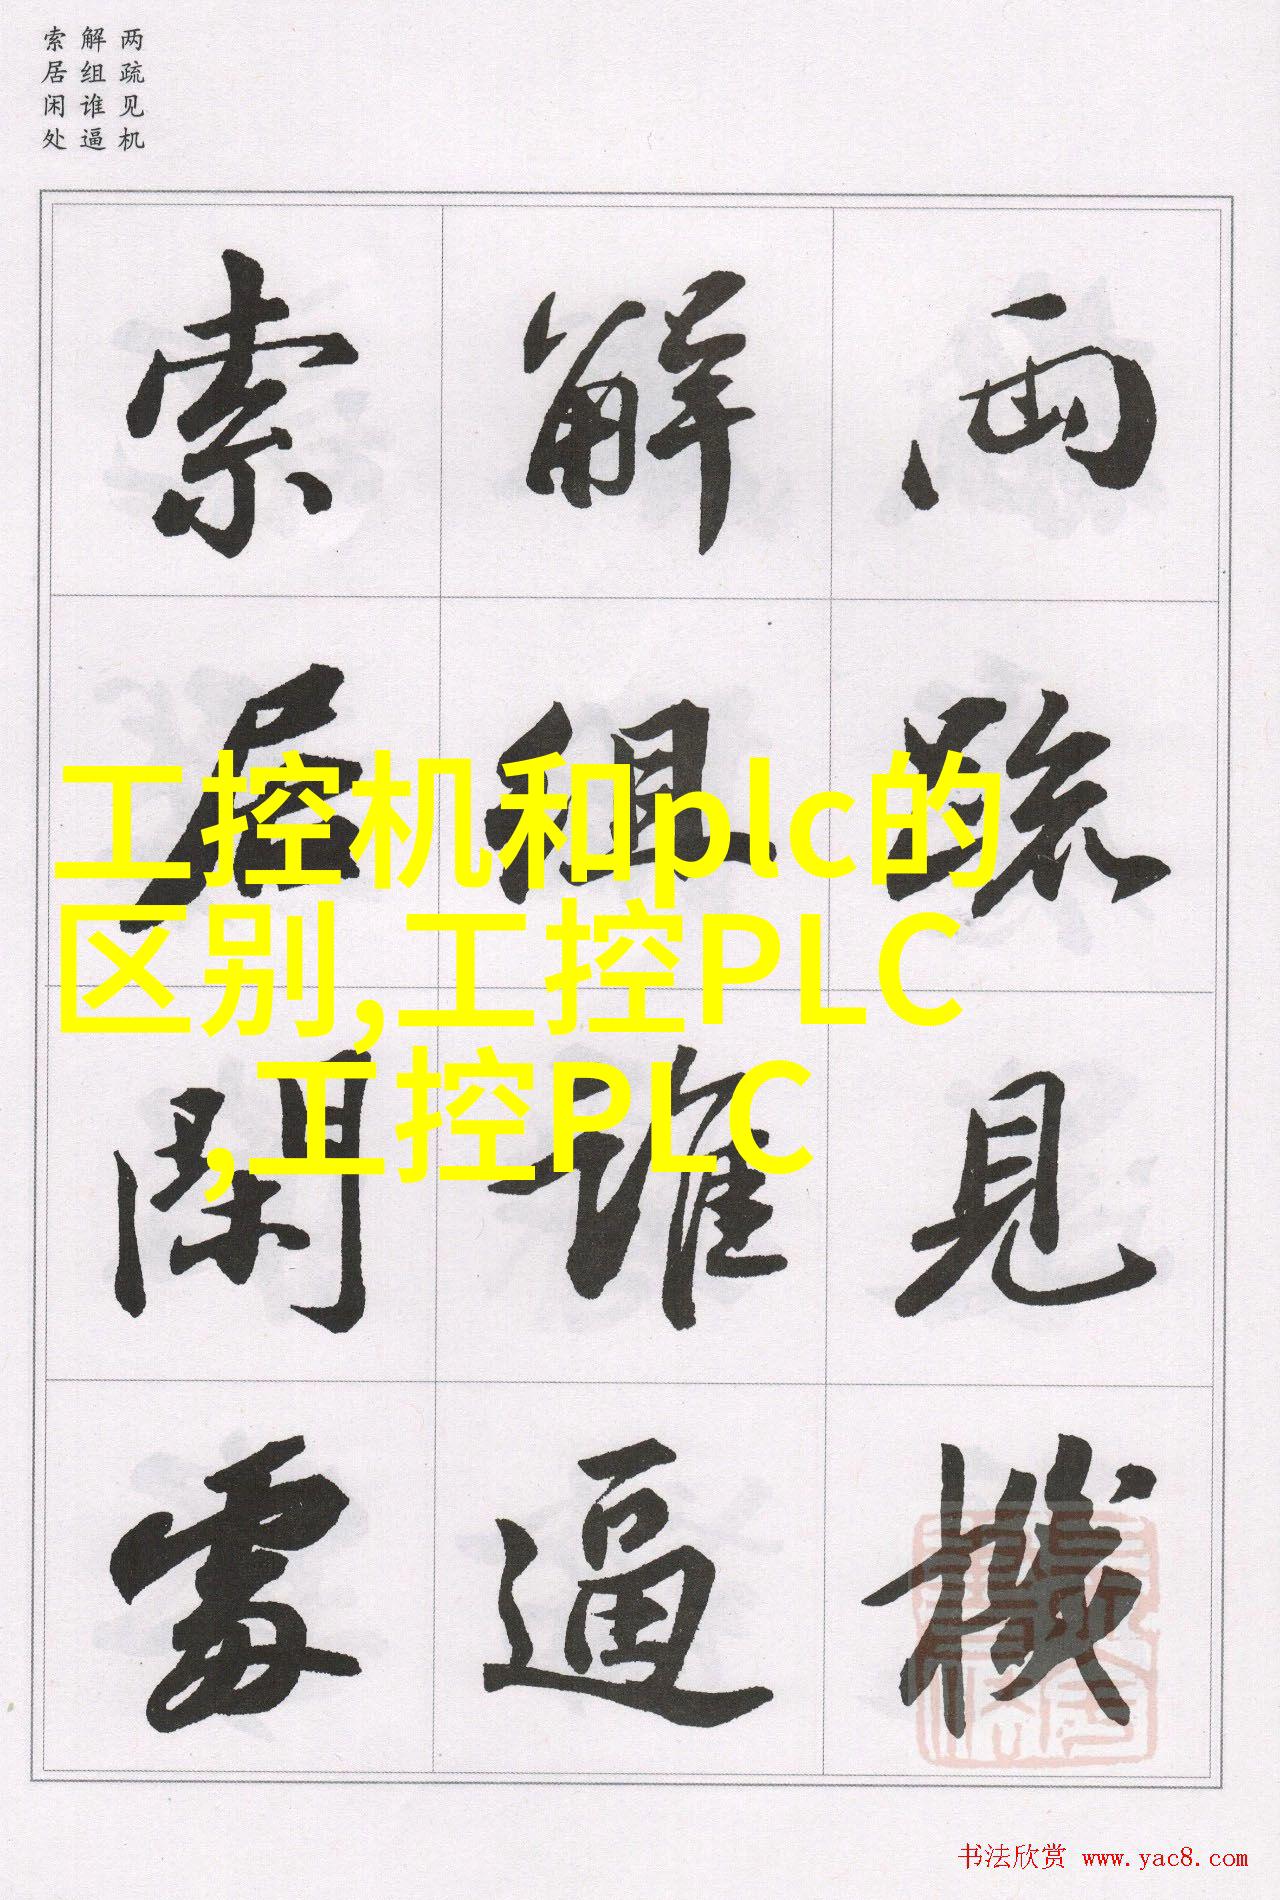 两疏见机
解组谁逼
索居闲处
兩疏見機
解組誰逼
索居閑處
工控机和plc的
区别,工控PLC
,工控PLC
书法欣赏 www.yac8.com